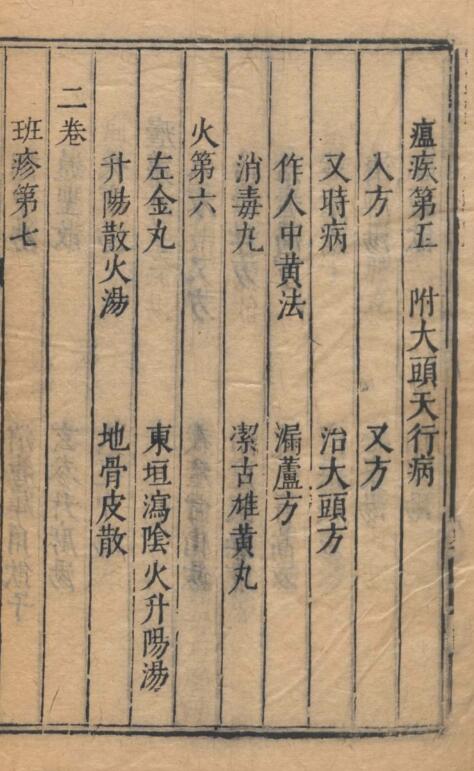 瘟疾第五　附大頭天行病
人方　又方
又時病　治大頭方
作人中黃法　漏蘆方
消毒丸　潔古雄黃丸
火第六
左金丸　東垣瀉陰火升陽湯
升陽散火湯　地骨皮散
二卷
班疹第七